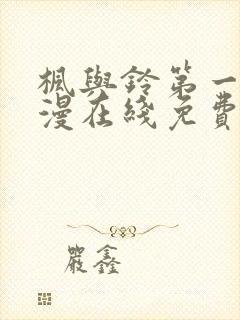 楓與鈴第一
漫在綫免費
嚴鑫